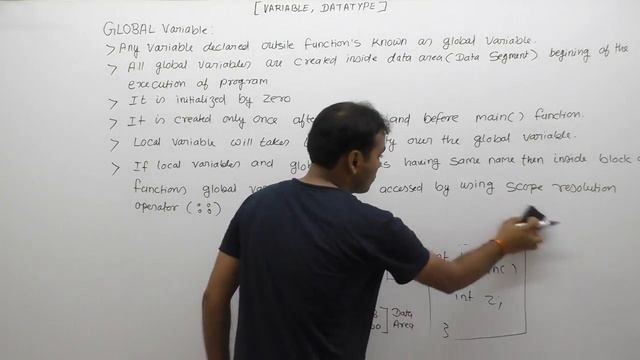 [VARIABLE, DATATYPE]
GLOBAL Variable:
> Any variable declared outsile function's known as global variable.
> All global variables are created inside data area (Data Segment) begining of the
execution of program
> It is initialized by zero
> It is created only once after and before main() function.
> Local variable will takes over the global variable.
> If local variables and having same name then inside block
functions global accessed by using scope resolution
operator (::)
int z;
Data
Area
}